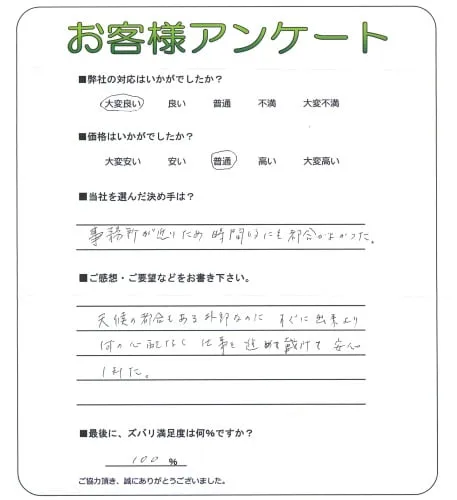 お客様アンケート
■弊社の対応はいかがでしたか？
大変良い 良い 普通 不満 大変不満
■価格はいかがでしたか？
大変安い 安い 普通 高い 大変高い
■当社を選んだ決め手は？
事務所が近いため 時間的にも都合がよかった。
■ご感想・ご要望などをお書き下さい。
天候の都合もある外部なのに すぐに出来より
何の心配なく 仕事を進めて戴けて 安心
しました。
■最後に、ズバリ満足度は何%ですか？
100 %
ご協力頂き、誠にありがとうございました。